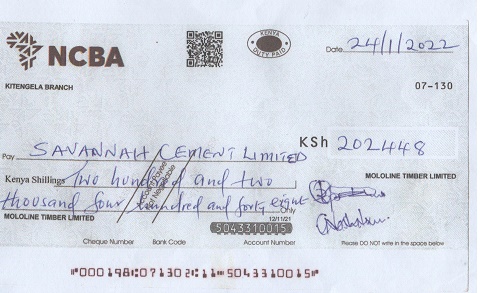 NCBA
KENYA
DUTY PAID
Date 24/1/2022
KITENGELA BRANCH
07-130
Pay SAVANNAH CEMENT LIMITED KSh 202448
Kenya Shillings Two hundred and two
MOLOLINE TIMBER LIMITED
thousand four hundred and forty eight Only
Account Payee
Not Negotiable
MOLOLINE TIMBER LIMITED
12/11/21
5043310015
Cheque Number Bank Code Account Number Please DO NOT write in the space below
"000198⑆071302⑆11⑈5043310015⑈